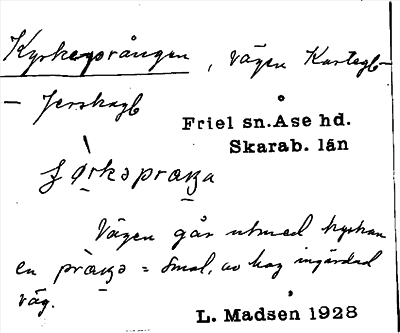 Kyrkeprången, vägen Kartegb-
- Jerskagb
Friel sn. Åse hd.
Skarab. län
Vägen går utmed kyrkan
en = smal, av hag ingärdad
väg.
L. Madsen 1928